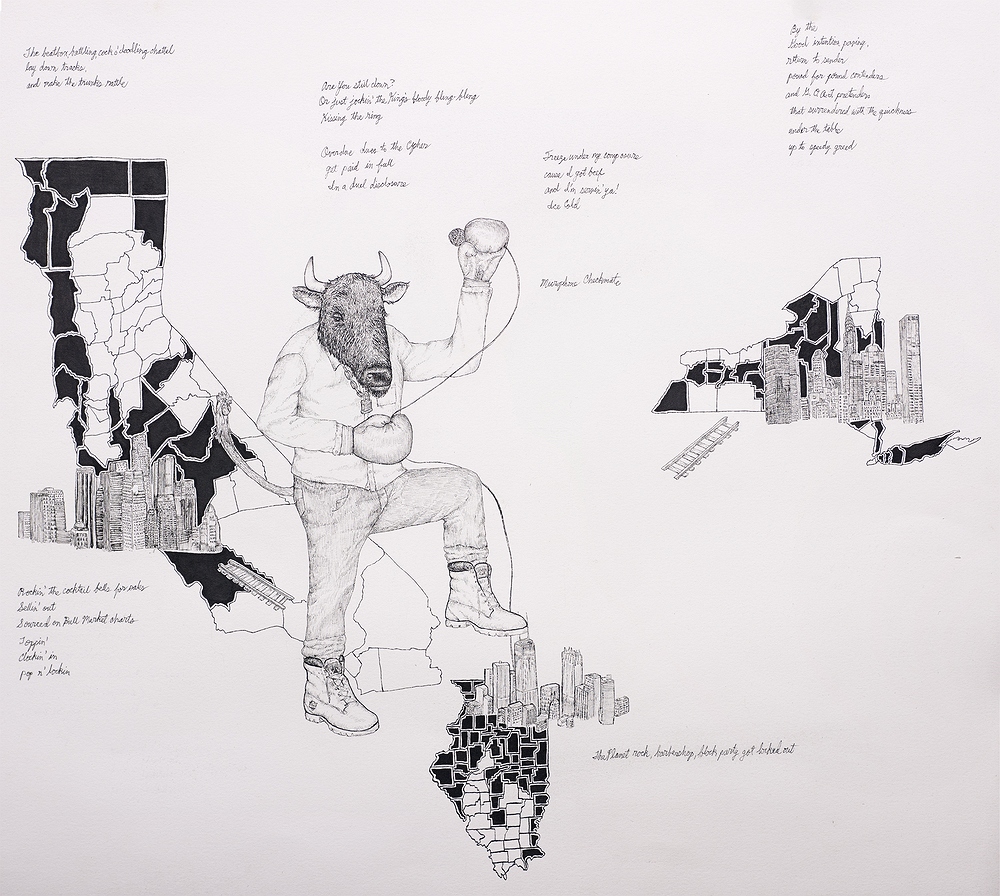 The beatbox, rattling cock o' doodling chattel
lay down tracks,
and make the trunks rattle
Are you still down?
Or just jockin' the King's bloody bling-bling
Kissing the ring
Overdue dues to the Cypher
get paid in full
In a duel disclosure
Freeze under my composure
cause I got beef
and I'm servin' ya!
Ice Cold
Murzphone Checkmate
By the
Good intention paving,
return to sender
pound for pound contenders
and G.O.A.T. pretenders
that surrendered with the quickness
under the table
up to speedy greed
Rockin' the cocktail bells for sales
Sellin' out
Sourced on Bull Market charts
Toppin'
Clockin' in
pop n' lockin
The Planet rock, barbershop, block party got locked out